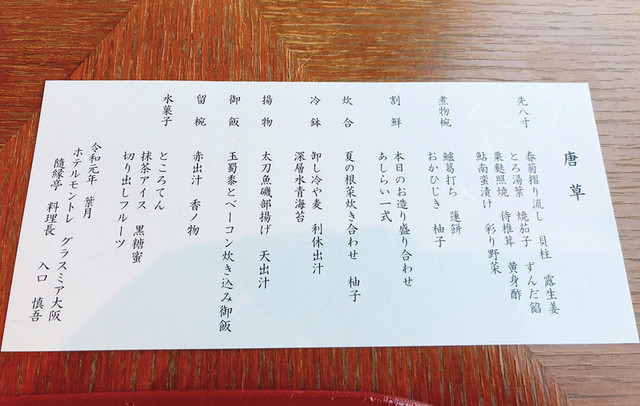 唐草
先八寸
春菊摺り流し　貝柱　露生姜
とろ湯葉　焼茄子　ずんだ餡
粟麩照焼　侍椎茸　黄身酢
鮎南蛮漬け　彩り野菜
煮物椀
鱸葛打ち　蓮餅
おかひじき　柚子
割鮮
本日のお造り盛り合わせ
あしらい一式
炊合
夏の根菜炊き合わせ　柚子
冷鉢
卸し冷や麦　利休出汁
深層水青海苔
揚物
太刀魚磯部揚げ　天出汁
御飯
玉蜀黍とベーコン炊き込み御飯
留椀
赤出汁　香ノ物
水菓子
ところてん　黒糖蜜
抹茶アイス
切り出しフルーツ
令和元年　葉月
ホテルモントレ　グラスミア大阪
隨縁亭　料理長　入口　慎吾